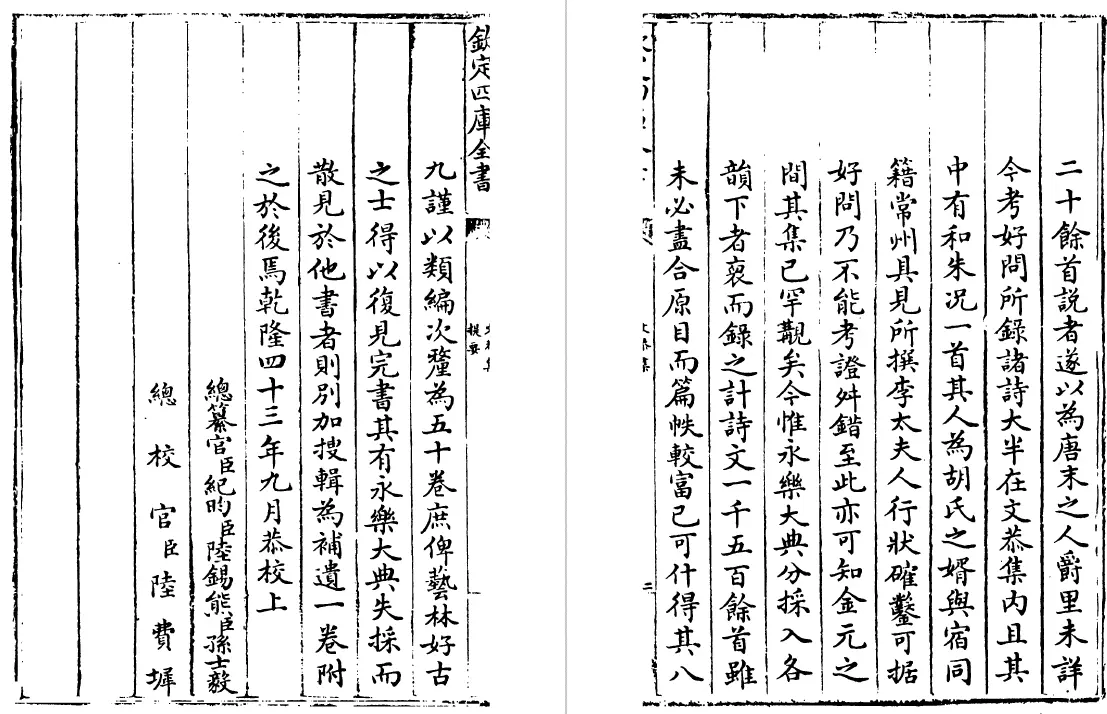 二十餘首説者遂以為唐末之人爵里未詳
今考好問所錄諸詩大半在文恭集内且其
中有和朱況一首其人為胡氏之婿與宿同
籍常州具見所撰李太夫人行狀確鑿可据
好問乃不能考證舛錯至此亦可知金元之
間其集已罕覯矣今惟永樂大典分採入各
韻下者裒而錄之計詩文一千五百餘首雖
未必盡合原目而篇帙較富已可什得其八
三
欽定四庫全書
提要
九謹以類編次釐為五十卷庶俾藝林好古
之士得以復見完書其有永樂大典失採而
散見於他書者則别加搜輯為補遺一卷附
之於後焉乾隆四十三年九月恭校上
總纂官臣紀昀臣陸錫熊臣孫士毅
總校官臣陸費墀